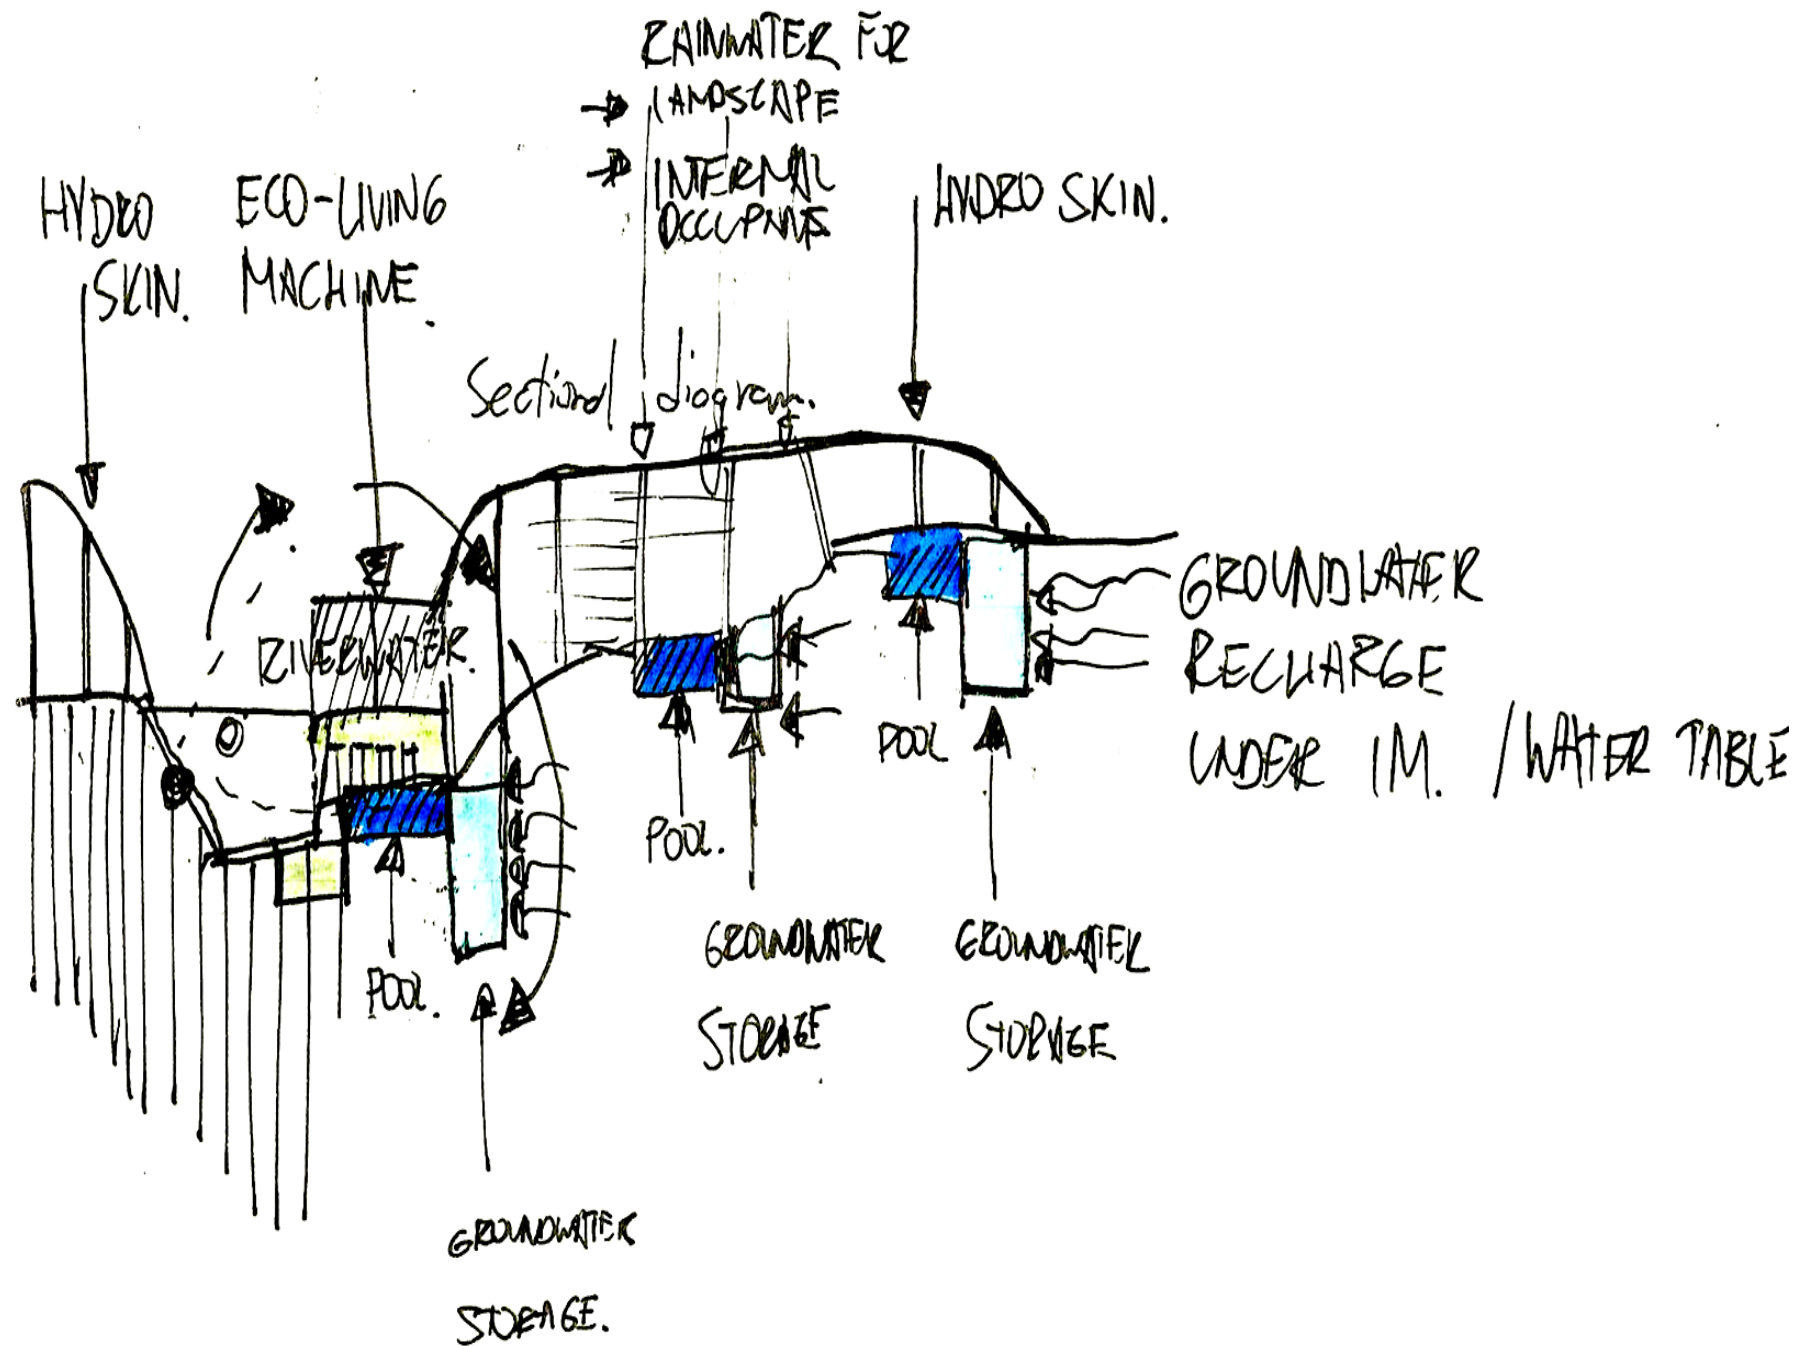 RAINWATER FOR
→ LANDSCAPE
→ INTERNAL
OCCUPANTS
HYDRO
SKIN.
ECO-LIVING
MACHINE.
HYDRO SKIN.
Sectional diagram.
RIVERWATER.
GROUNDWATER
RECHARGE
UNDER 1M. / WATER TABLE
POOL
POOL.
POOL.
GROUNDWATER
STORAGE
GROUNDWATER
STORAGE
GROUNDWATER
STORAGE.